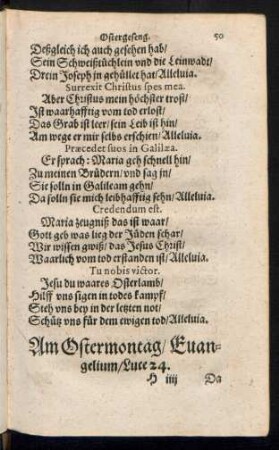 Ostergeseng. 50
Deßgleich ich auch gesehen hab/
Sein Schweißtüchlein vnd die Leinwadt/
Drein Joseph in gehüllet hat/Alleluia.
Surrexit Christus spes mea.
Aber Christus mein höchster trost/
Ist waarhafftig vom tod erlost/
Das Grab ist leer/sein Leib ist hin/
Am wege er mir selbs erschien/Alleluia.
Præcedet suos in Galilæa.
Er sprach: Maria geh schnell hin/
Zu meinen Brüdern/vnd sag jn/
Sie solln in Galileam gehn/
Da solln sie mich leibhafftig sehn/Alleluia.
Credendum est.
Maria zeugniß das ist waar/
Gott geb was lieg der Jüden schar/
Wir wissen gwiß/das Jesus Christ/
Waarlich vom tod erstanden ist/Alleluia.
Tu nobis victor.
Jesu du waares Osterlamb/
Hilff vns sigen in todes kampff/
Steh vns bey in der letzten not/
Schütz vns für dem ewigen tod/Alleluia.
Am Ostermontag/Euan-
gelium/Luce 24.
H iiij Da